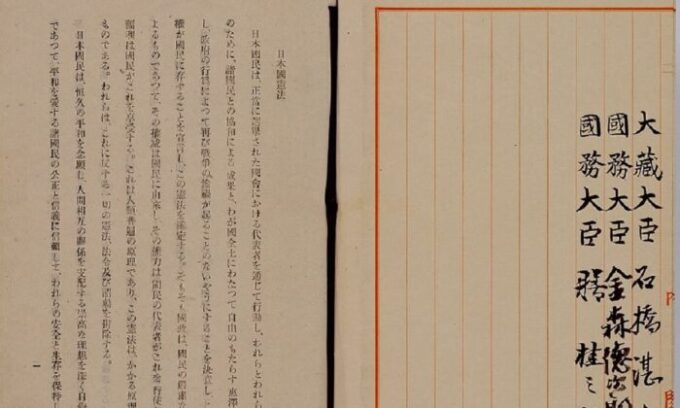 大藏大臣 石橋湛
國務大臣 金森德次郎
國務大臣 膳 桂之
日本國憲法
日本國民は、正當に選擧された國會における代表者を通じて行動し、われらとわれら
のために、諸國民との協和による成果と、わが國全土にわたつて自由のもたらす惠澤
し、政府の行爲によつて再び戰爭の慘禍が起ることのないやうにすることを決意し、
權が國民に存することを宣言し、この憲法を確定する。そもそも國政は、國民の嚴肅な
よるものであつて、その權威は國民に由來し、その權力は國民の代表者がこれを行使
福利は國民がこれを享受する。これは人類普遍の原理であり、この憲法は、かかる原理
ものである。われらは、これに反する一切の憲法、法令及び詔勅を排除する。
日本國民は、恒久の平和を念願し、人間相互の關係を支配する崇高な理想を深く自
であつて、平和を愛する諸國民の公正と信義に信賴して、われらの安全と生存を保持し
一